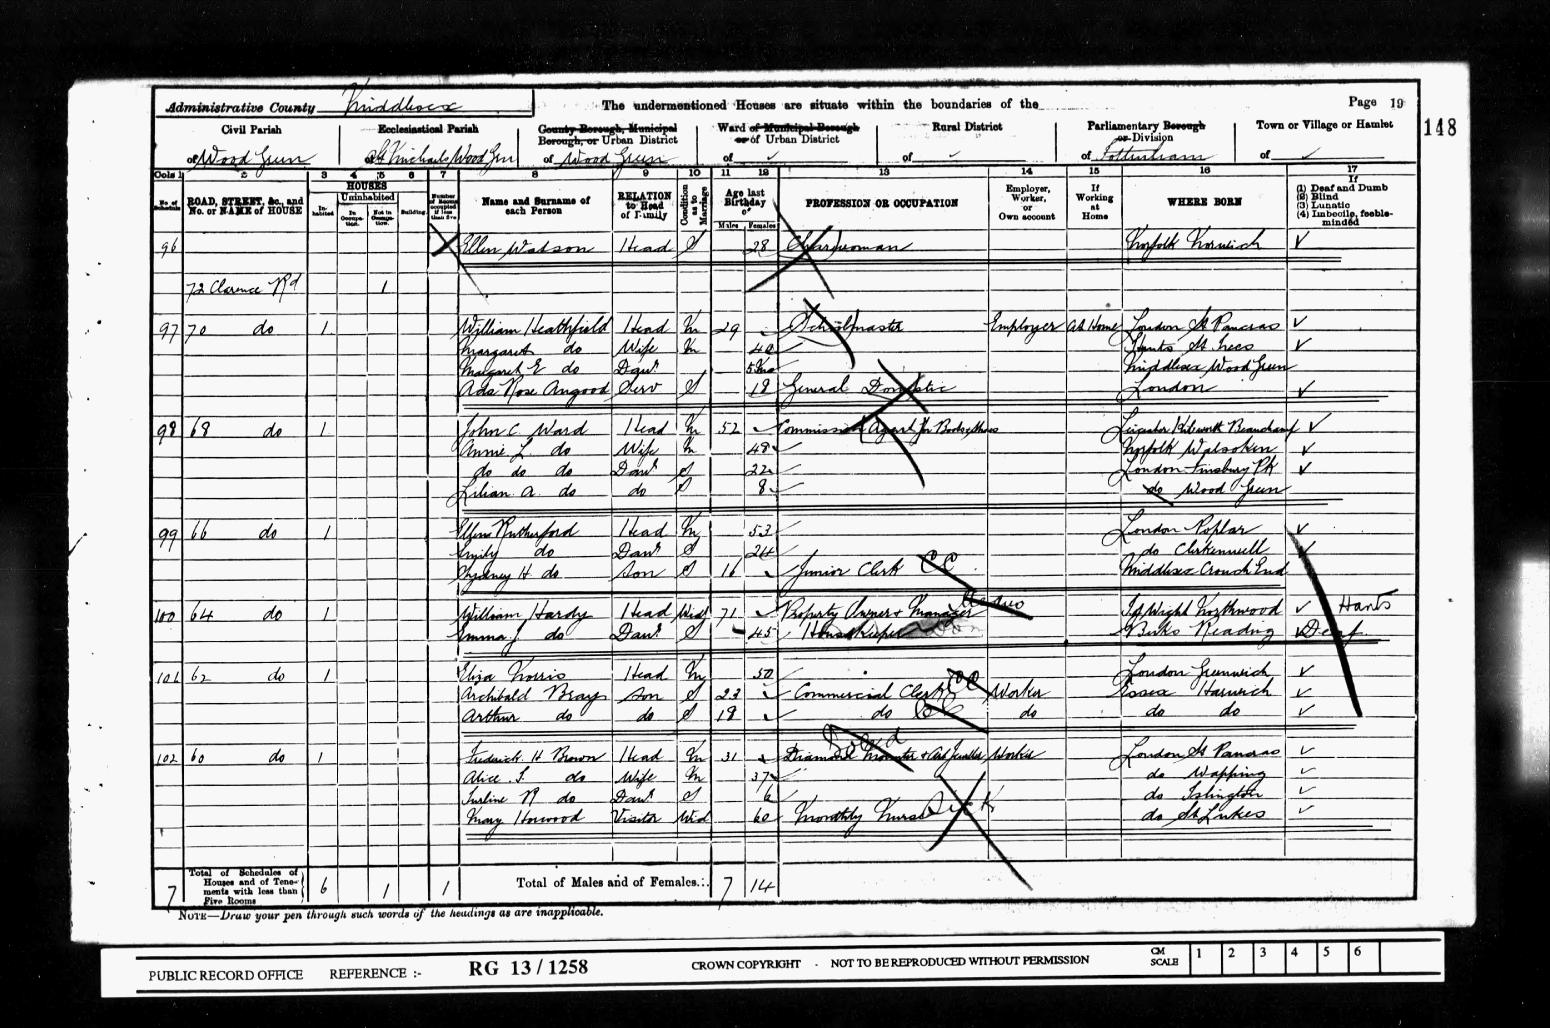 Administrative County Middlesex
The undermentioned Houses are situate within the boundaries of the
Page 19
148
Civil Parish
of Wood Green
Ecclesiastical Parish
of St Michaels Wood Grn
County Borough, Municipal Borough, or Urban District
of Wood Green
Ward of Municipal Borough or of Urban District
of
Rural District
of
Parliamentary Borough or Division
of Tottenham
Town or Village or Hamlet
of
Cols 1 2 3 4 5 6 7 8 9 10 11 12 13 14 15 16 17
No. of Schedule
ROAD, STREET, &c., and No. or NAME of HOUSE
HOUSES
Inhabited
Uninhabited
In Occupation.
Not in Occupation.
Building.
Number of Rooms occupied if less than five
Name and Surname of each Person
RELATION to Head of Family
Condition as to Marriage
Age last Birthday of
Males Females
PROFESSION OR OCCUPATION
Employer, Worker, or Own account
If Working at Home
WHERE BORN
If (1) Deaf and Dumb (2) Blind (3) Lunatic (4) Imbecile, feeble-minded
96 Ellen Watson Head S 28 Charwoman Norfolk Norwich
72 Clarence Rd 1
97 70 do 1 William Heathfield Head M 29 Schoolmaster Employer At Home London St Pancras
Margaret do Wife M 40 Hants St
Margaret E do Daur 5mo Middlesex Wood Green
Ada Rose Angood Serv S 18 General Domestic London
98 68 do 1 John C. Ward Head M 52 Commission Agent for Boots & Shoes Leicester Kibworth Beauchamp
Annie L. do Wife M 48 Norfolk Walsoken
do do do Daur S 22 London Finsbury Pk
Lilian A. do do S 8 do Wood Green
99 66 do 1 Ellen Rutherford Head M 53 London Poplar
Emily do Daur S 24 do Clerkenwell
Sydney H do Son S 16 Junior Clerk CC Middlesex Crouch End
100 64 do 1 William Hardy Head Widr 71 Property Owner & Manager I of Wight Northwood Hants
Emma J do Daur S 45 Housekeeper Berks Reading Deaf
101 62 do 1 Eliza Norris Head M 50 London Greenwich
Archibald Brays Son S 23 Commercial Clerk CC Worker Essex Harwich
Arthur do do S 18 do CC do do do
102 60 do 1 Frederick H Brown Head M 31 Diamond Mounter & Art Jeweller Worker London St Pancras
Alice S. do Wife M 37 do Wapping
R do Daur S 6 do Islington
Mary Horwood Visitor Wid 60 Monthly Nurse Sick do St Lukes
7 Total of Schedules of Houses and of Tenements with less than Five Rooms 6 1 1 Total of Males and of Females... 7 14
NOTE—Draw your pen through such words of the headings as are inapplicable.
PUBLIC RECORD OFFICE REFERENCE :- RG 13 / 1258 CROWN COPYRIGHT - NOT TO BE REPRODUCED WITHOUT PERMISSION CM SCALE 1 2 3 4 5 6